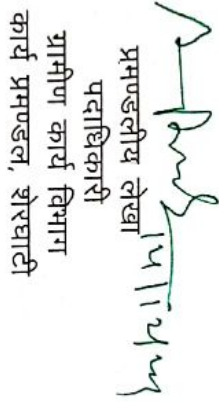 प्रमण्डलीय लेखा
पदाधिकारी
ग्रामीण कार्य विभाग
कार्य प्रमण्डल, शेरघाटी